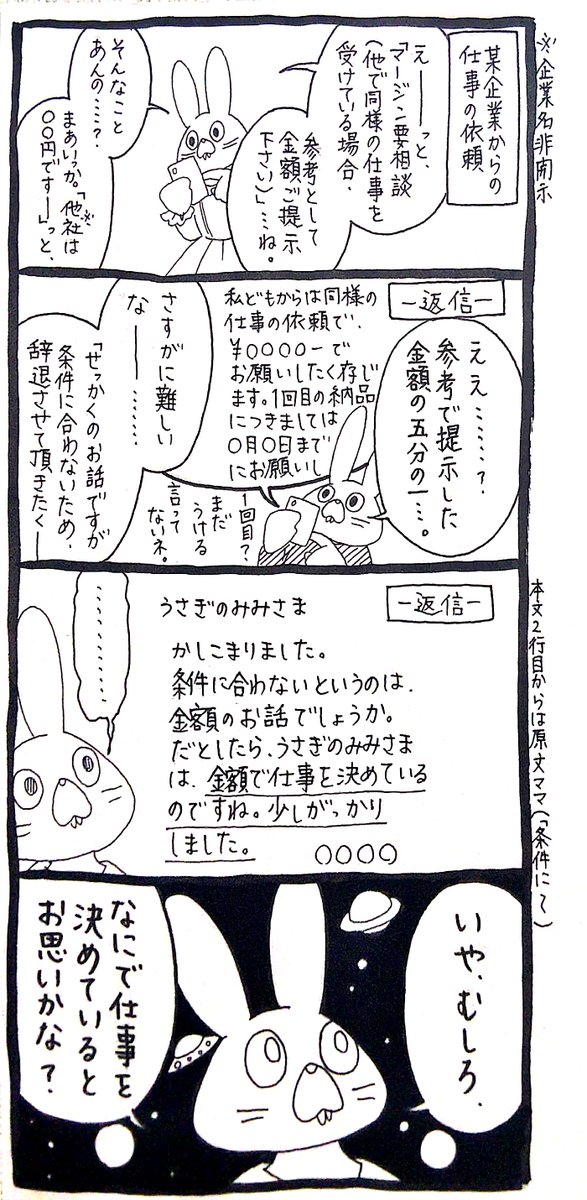 ※企業名非開示
某企業からの
仕事の依頼
えーーーっと、
「マージン要相談
(他で同様の仕事を
受けている場合、
参考として
金額ご提示
下さい)」…ね。
そんなこと
あんの……?
まあいっか。「他社は※
〇〇円ですー」っと、
ー返信ー
ええ……?
参考で提示した
金額の五分の一…。
私どもからは同様の
仕事の依頼で、
¥〇〇〇〇ーで
お願いしたく存じ
ます。1回目の納品
につきましては
〇月〇日まで
にお願いし
1回目?
まだ
うける
言って
ないネ。
さすがに難しい
なーー……
「せっかくのお話ですが
条件に合わないため、
辞退させて頂きたくー
本文2行目からは原文ママ(「条件に〜)
ー返信ー
うさぎのみみさま
かしこまりました。
条件に合わないというのは、
金額のお話でしょうか。
だとしたら、うさぎのみみさま
は、金額で仕事を決めている
のですね。少しがっかり
しました。
〇〇〇〇
…………
いや、むしろ、
なにで仕事を
決めていると
お思いかな?